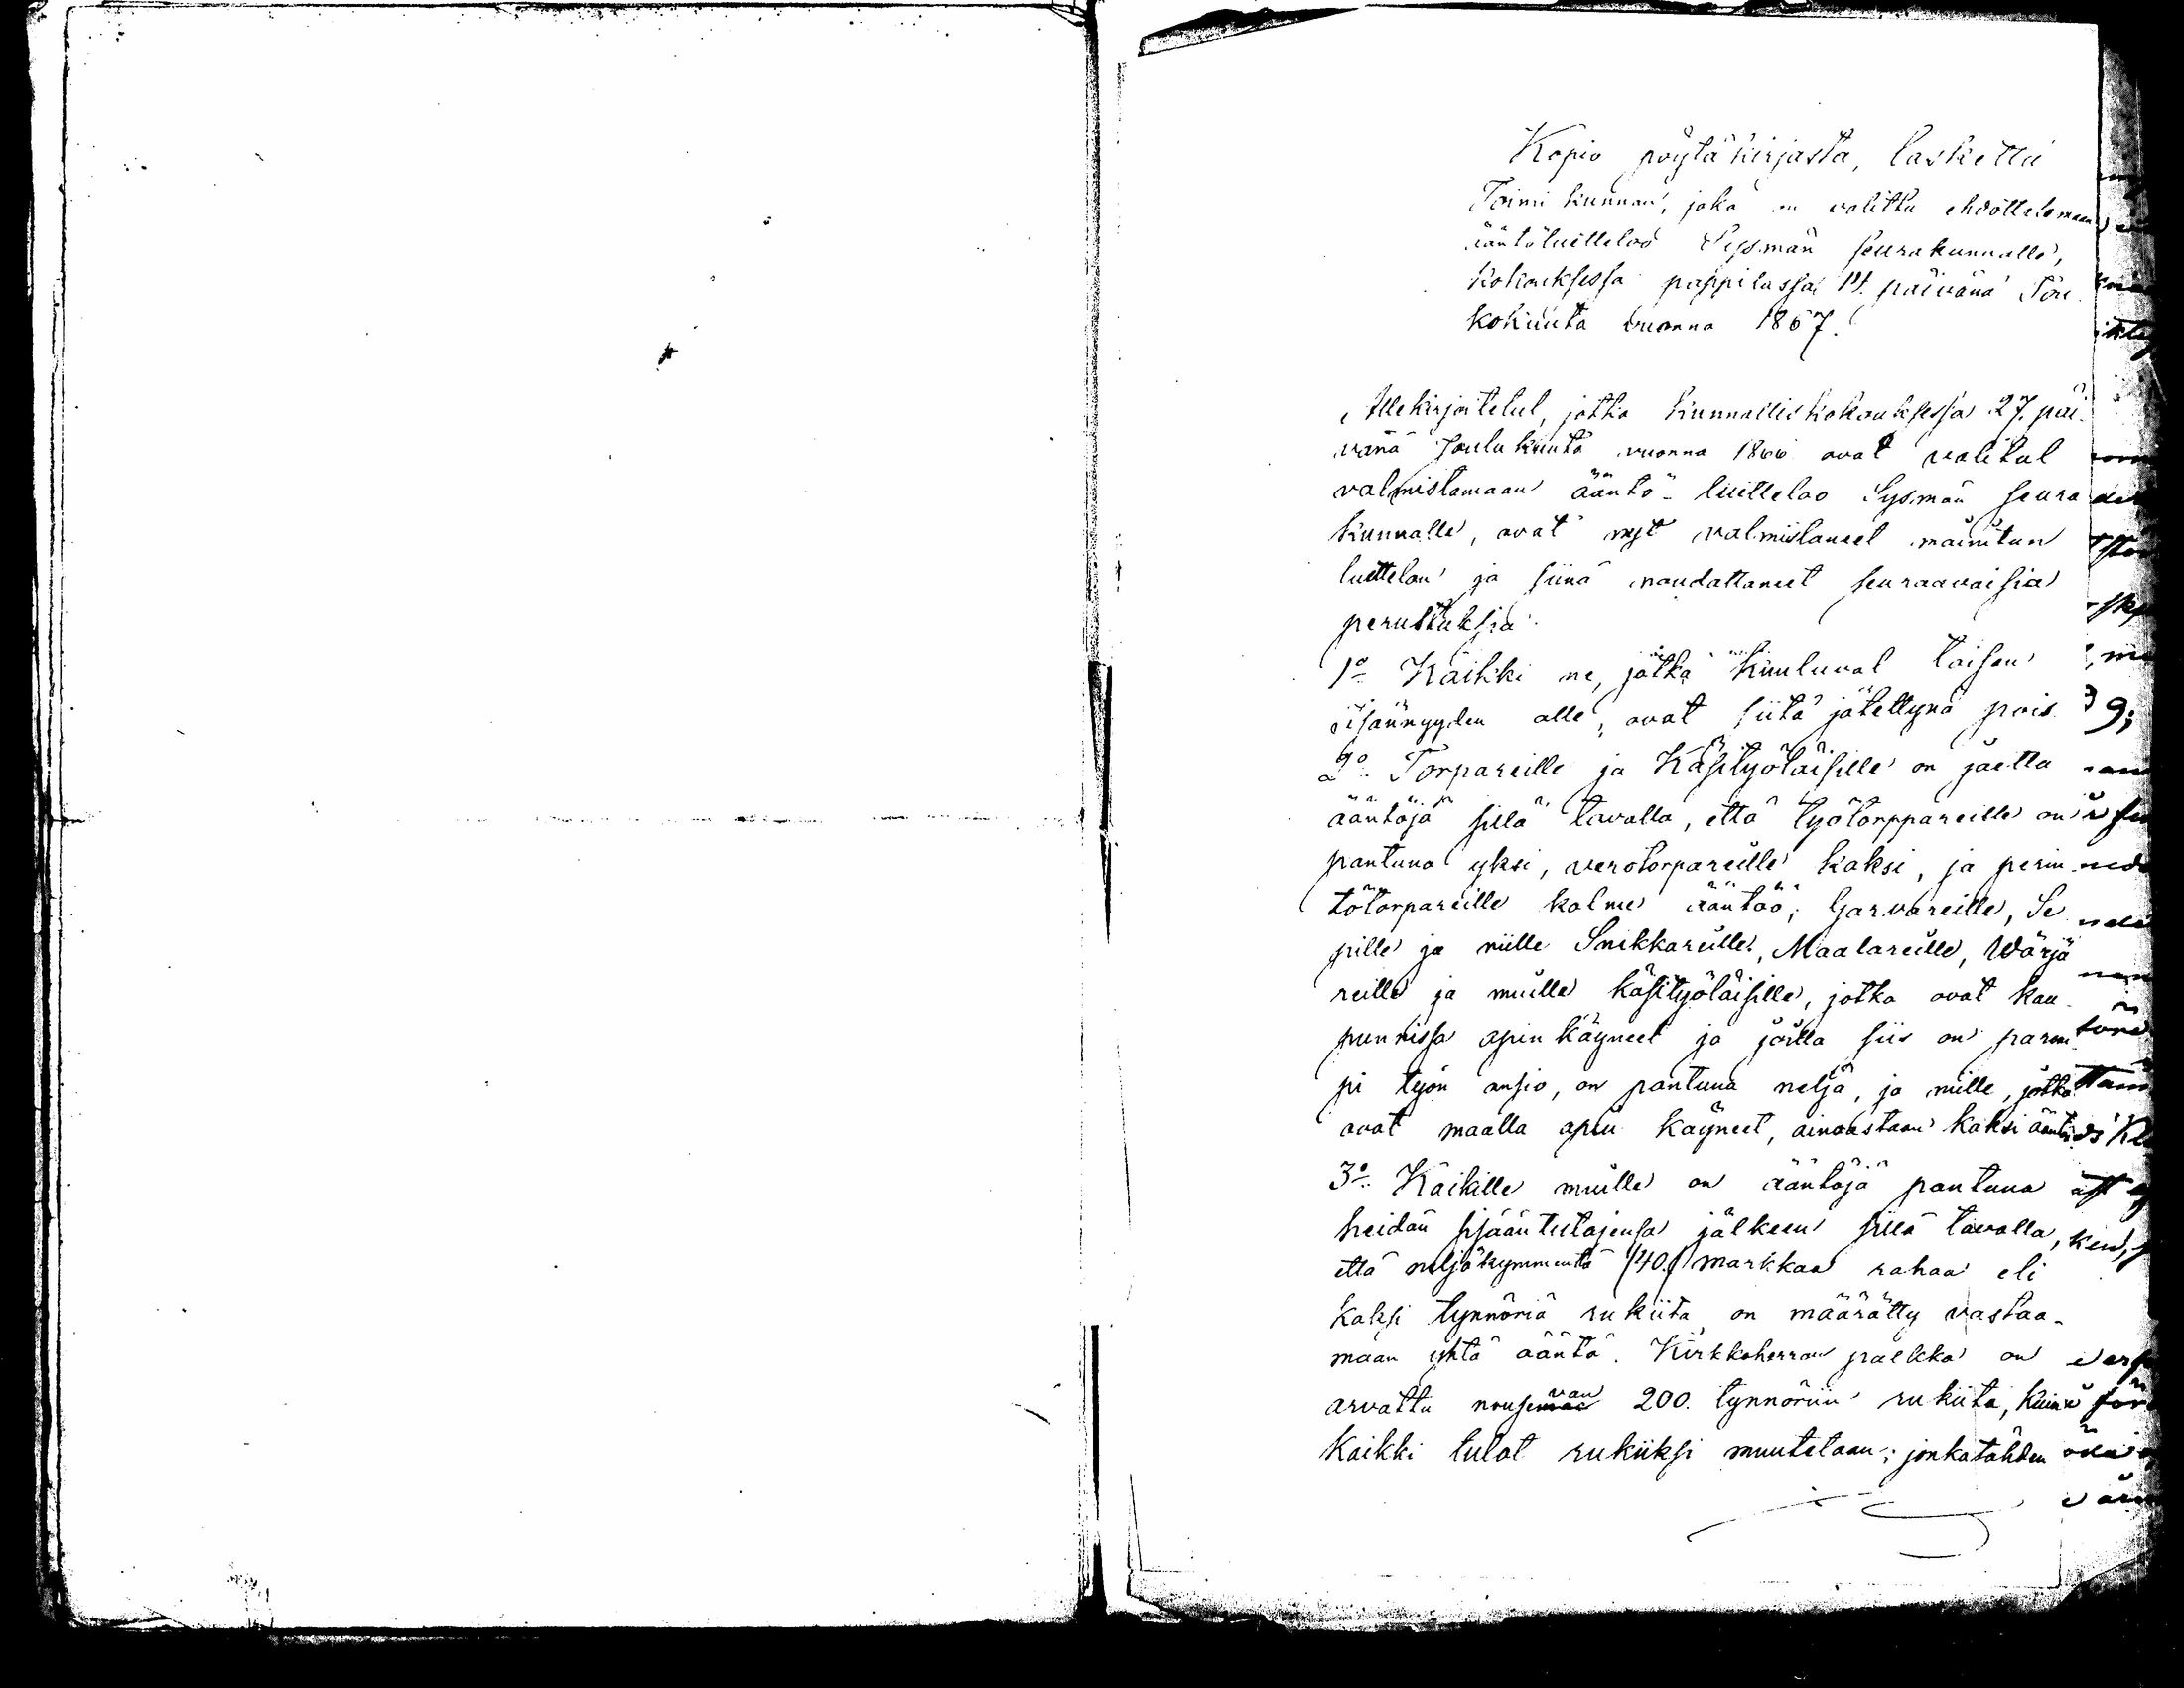 Kopio pöytäkirjasta, laskettu
Toimi kunnan, joka on valittu ehdottelemaan
ääntöluetteloo Sysmän seurakunnalle,
kokouksessa pappilassa 14. päivänä Tou
kokuuta vuonna 1867.
Allekirjoitetut, jotka Kunnalliskokouksessa 27. päi-
vänä Joulukuuta vuonna 1866 ovat valitut
valmistamaan ääntö-luetteloo Sysmän seura
kunnalle, ovat nyt valmistaneet mainitun
luettelon ja siinä noudattaneet seuraavaisia
perustuksia.
1o Kaikki ne, jotka kuuluvat toisen
isännyyden alle, ovat siitä jätettynä pois
2o. Torpareille ja Käsityöläisille on jaettu
ääntöjä sillä tavalla, että työtorppareille on
pantuna yksi, verotorpareille kaksi, ja perin
tötorpareille kolme ääntöö; Garvareille, Se
pille ja niille Snikkareille, Maalareille, Wärjä
reille ja muille käsityöläisille, jotka ovat kau
punnissa opin käyneet ja joilla siis on parem
pi työn ansio, on pantuna neljä, ja niille, jotka
ovat maalla opin käyneet, ainoastaan kaksi
3o. Kaikille muille on ääntöjä pantuna
heidän sisääntulojensa jälkeen sillä tavalla,
että neljäkymmentä /40./ markkaa rahaa eli
kaksi tynnöriä rukiita on määrätty vastaa-
maan yhtä ääntä. Kirkkoherran palkka on
arvattu nousevan 200. tynnöriin rukiita, kuin
kaikki tulot rukiiksi muutetaan; jonkatähden